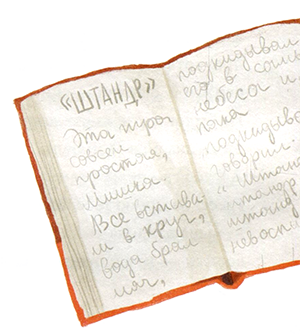 «ШТАНДР»
Эта игра
совсем
простая,
Мишка.
Все встава-
ли в круг,
вода брал
мяч,
подкидывал
его в самые
небеса и
пока
подкидывал
говорил:
"Штан
штандр